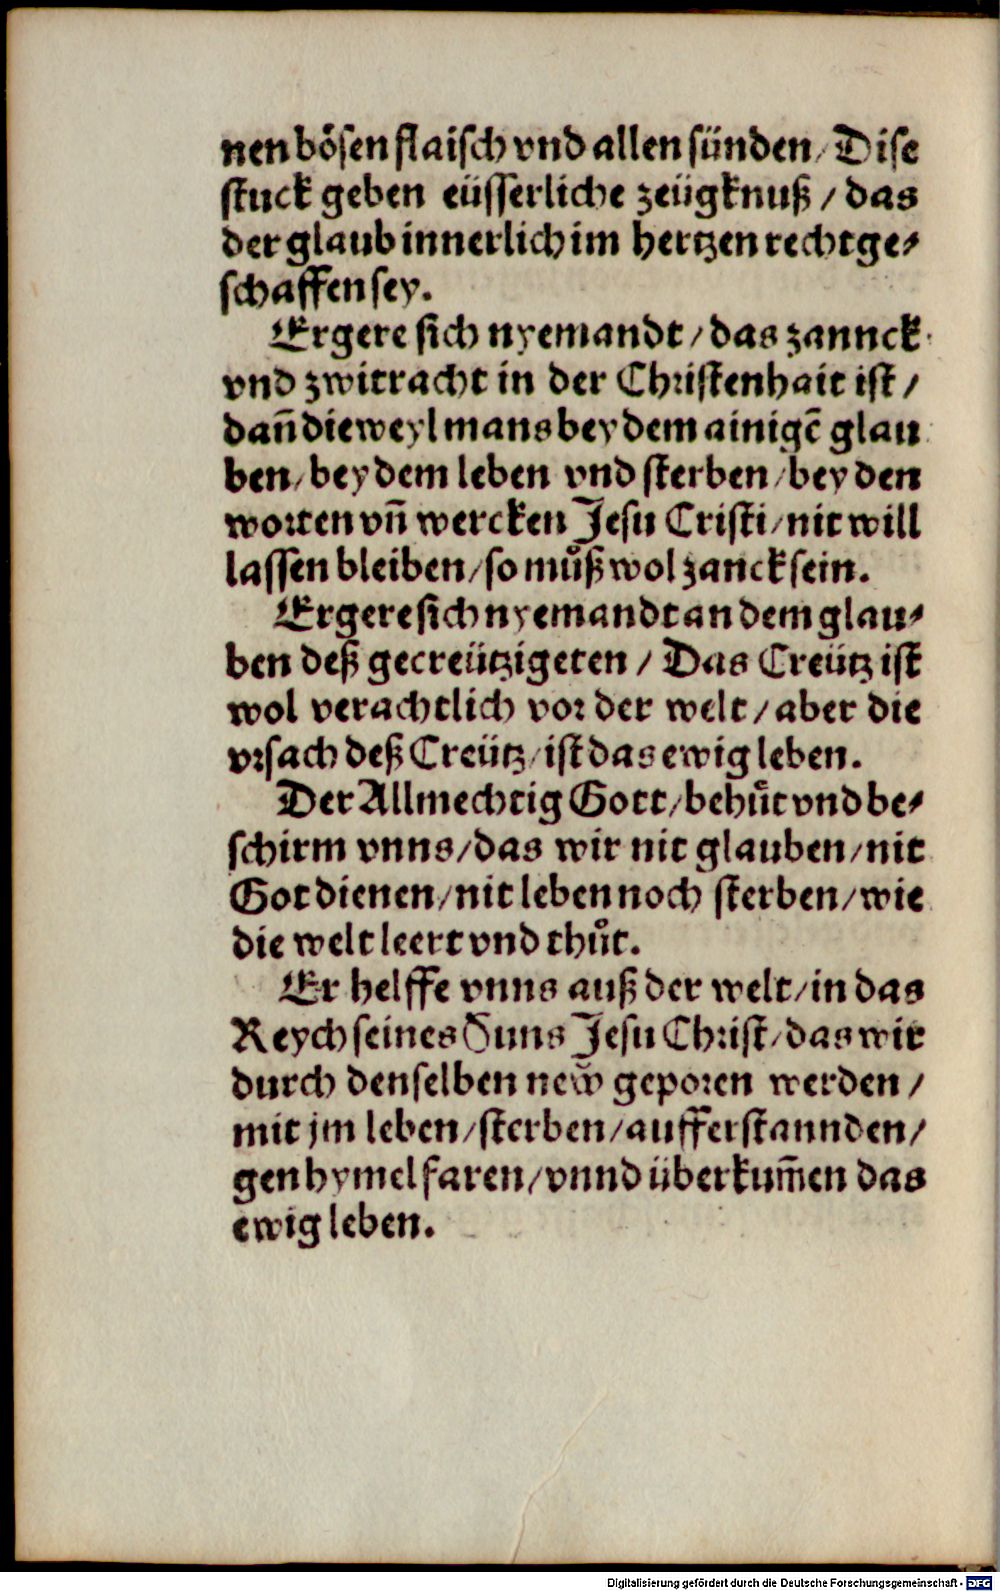 nen bösen flaisch vnd allen sünden / Dise
stuck geben eüsserliche zeügknuß / das
der glaub innerlich im hertzen recht ge⸗
schaffen sey.
Ergere sich nyemandt / das zannck
vnd zwitracht in der Christenhait ist /
dañ die weyl mans bey dem ainigẽ glau
ben / bey dem leben vnd sterben / bey den
worten vñ wercken Jesu Cristi / nit will
lassen bleiben / so můß wol zanck sein.
Ergere sich nyemandt an dem glau⸗
ben deß gecreützigeten / Das Creütz ist
wol verachtlich vor der welt / aber die
vrsach deß Creütz / ist das ewig leben.
Der Allmechtig Gott / behůt vnd be⸗
schirm vnns / das wir nit glauben / nit
Got dienen / nit leben noch sterben / wie
die welt leert vnd thůt.
Er helffe vnns auß der welt / in das
Reych seines Suns Jesu Christ / das wir
durch denselben new̃ geporen werden /
mit jm leben / sterben / aufferstannden /
gen hymel faren / vnnd überkum̃en das
ewig leben.
Digitalisierung gefördert durch die Deutsche Forschungsgemeinschaft - DFG